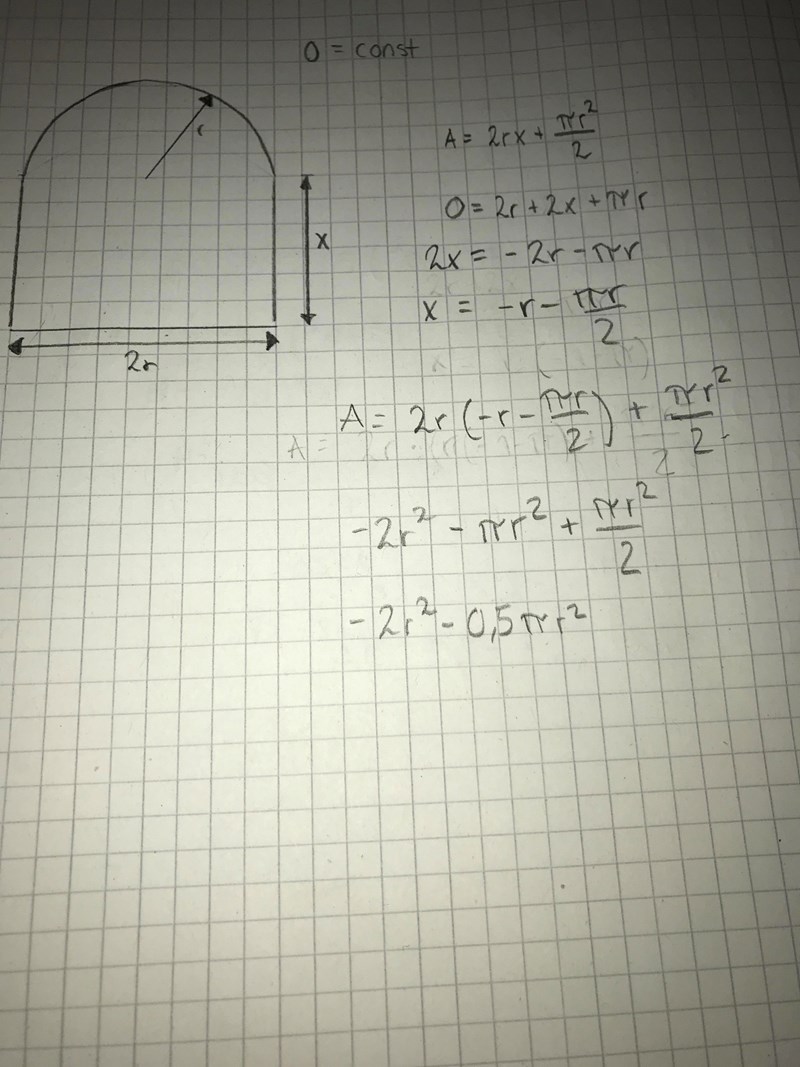 O = const
r
x
2r
A = 2rx + πr²/2
O = 2r + 2x + πr
2x = - 2r - πr
x = -r - πr/2
A = 2r (-r - πr/2) + πr²/2
-2r² - πr² + πr²/2
-2r² - 0,5πr²